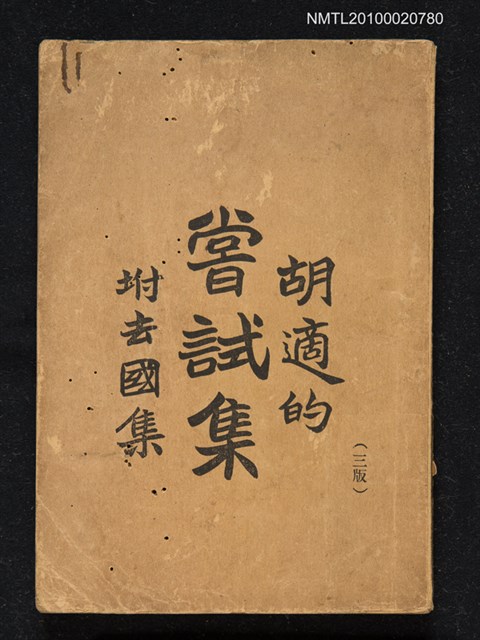 NMTL20100020780
胡適的
（三版）
嘗試集
坿去國集